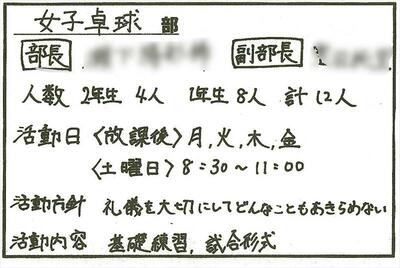 女子卓球 部
部長 副部長
人数 2年生 4人 1年生 8人 計12人
活動日 〈放課後〉月,火,木,金
〈土曜日〉8:30~11:00
活動方針 礼儀を大切にしてどんなこともあきらめない
活動内容 基礎練習,試合形式